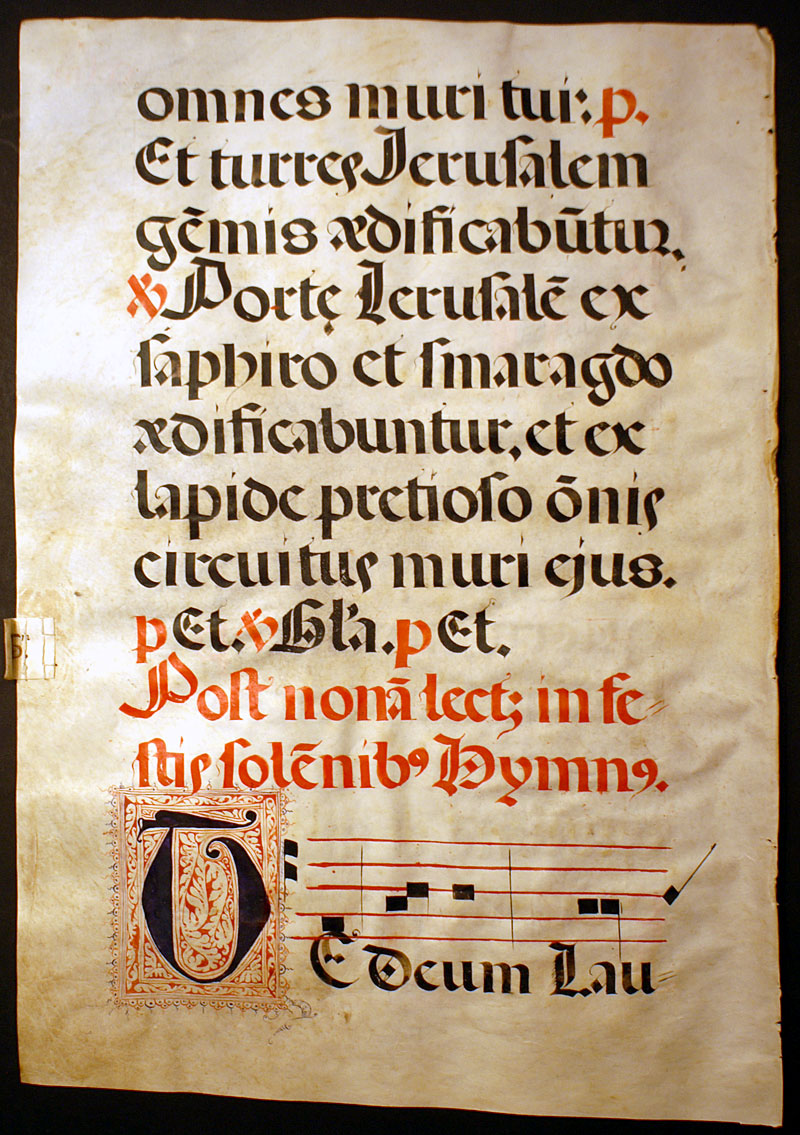 omnes muri tui: p.
Et turres Jerusalem
gēmis ædificabūtur.
℣ Portę Jerusalē ex
saphiro et smaragdo
ædificabuntur, et ex
lapide pretioso ōnis
circuitus muri ejus.
p Et. ℣ Gl'a. p Et.
Post nonā lect; in fe-
stis solēnibꝯ Hymnꝯ.
TE Deum Lau-